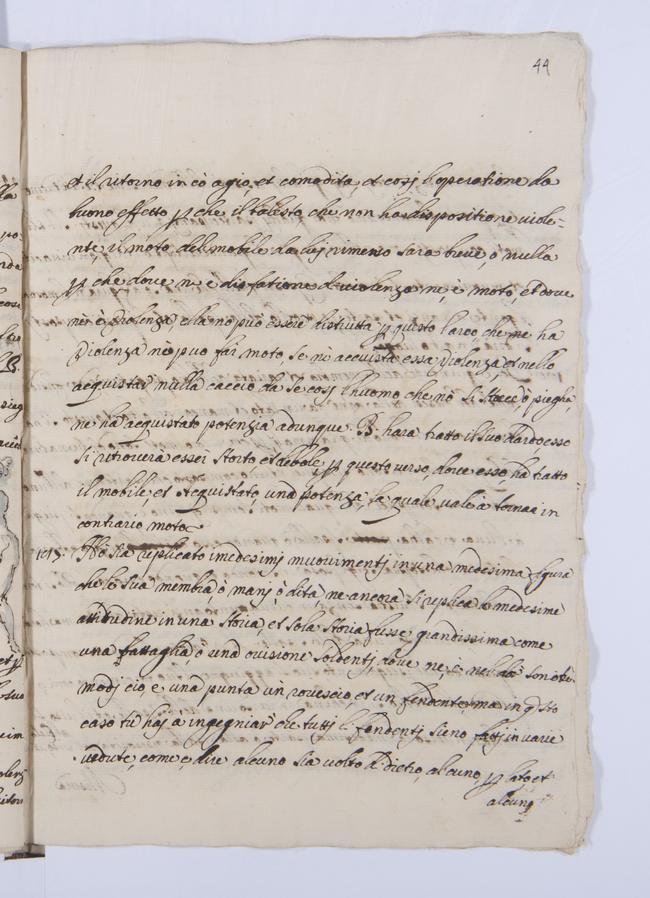 44
et il ritorno in cò agio, et comodita, et cosj l'operatione da
buono effetto p che il balesto, che non ha dispositione viole=
nte, il moto del mobile da luj rimeno sara breve, ò nulla
p che dove nè è disfatione di violenza nè, è moto, et dove
nè è violenza, ella nò può essere distrutta p questo l'arco, che nè ha
violenza nò puo far moto se nò acquista essa violenza et nello
acquistar nulla caccio da se cosj l'huomo che nò si storce, ò piegha,
nè ha acquistato potenzia adunque. B. hara tratto il suo dardo esso
si ritrovera esser storto, et debole, p questo verso, dove esso, ha tratto
il mobile, et acquistato, una potenza, la quale vale à tornar in
contrario moto
Nò sia replicato i medesimj muovimentj in una medesima figura
che le sua membra, ò manj, ò dita, ne ancora si replica le medesime
attitudine in una storia, et sola storia fusse grandissima come
una battaglia, ò una occisione Soldatj, dove nè, è nel dar son tre
modj cio, è una punta un rovescio, et un fendente, ma in q̃sto
caso tu haj a ingegniar che tuttj li fendentj sieno fattj in varie
vedute, come è dire alcuno sia volto di dietro, alcuno, p lato et
alcunj